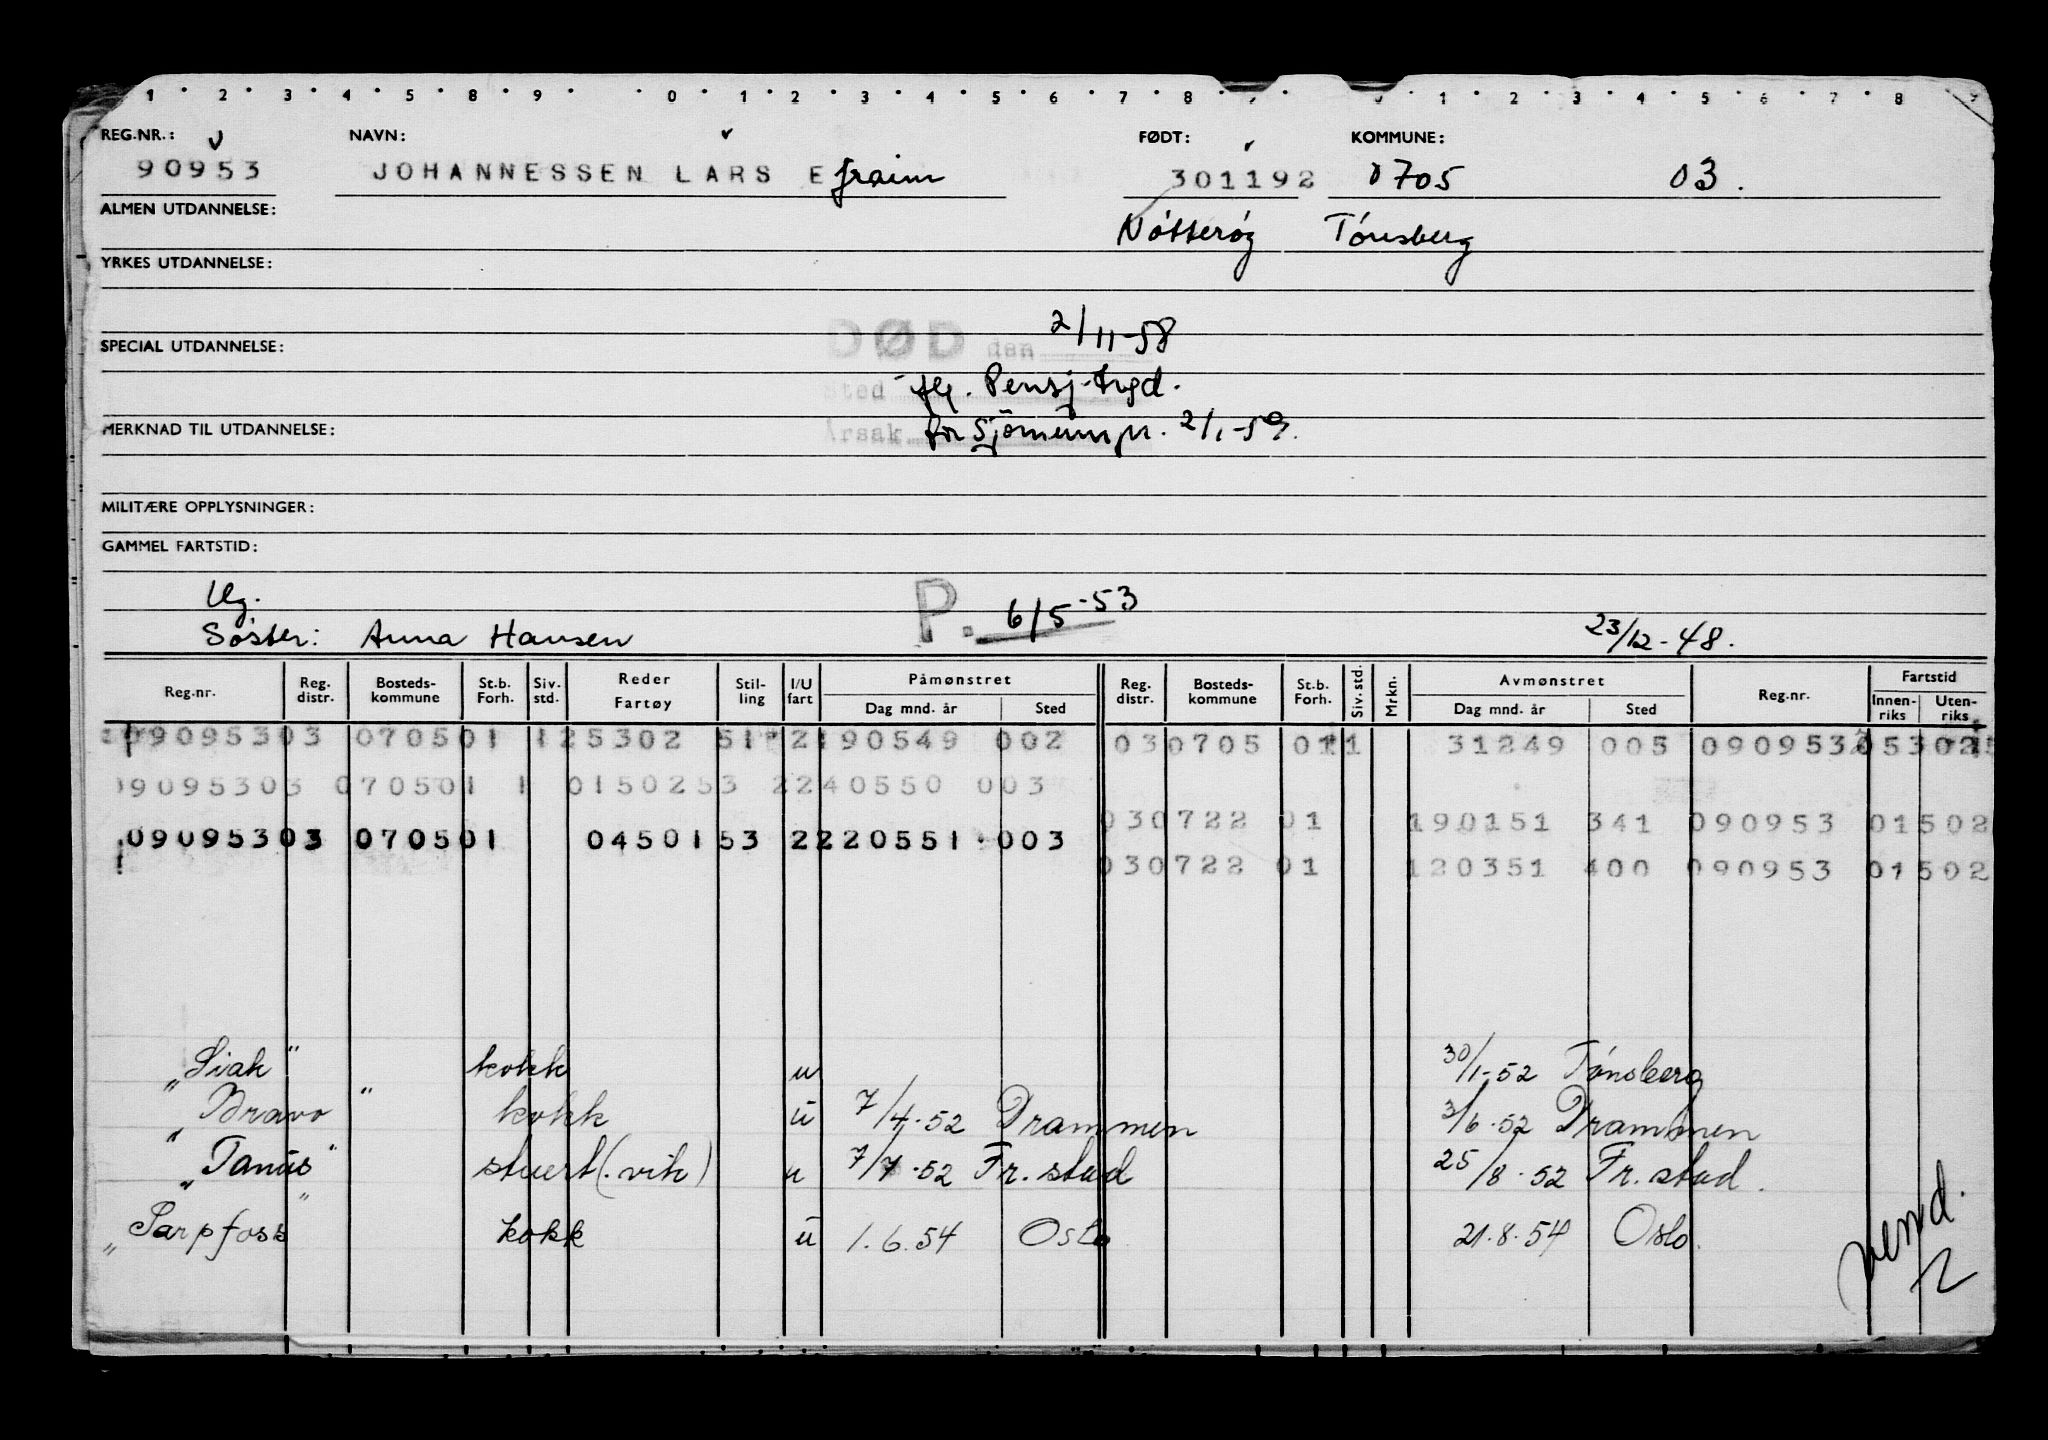 1 2 3 4 5 8 9 0 1 2 3 4 5 6 7 8 1 2 3 4 5 6 7 8 9
REG.NR.: NAVN: FØDT: KOMMUNE:
90953 JOHANNESSEN LARS Efraim 301192 0705 03.
ALMEN UTDANNELSE: Nötterøy Tönsberg
YRKES UTDANNELSE:
DØD den 2/11-58
SPECIAL UTDANNELSE:
Sted flg. Pensj.trgd.
MERKNAD TIL UTDANNELSE: Årsak for Sjömenn pr. 2/1-59.
MILITÆRE OPPLYSNINGER:
GAMMEL FARTSTID:
Ug. P. 6/5-53
Søster: Anna Hansen 23/12-48.
Reg.nr. Reg. distr. Bosteds-kommune St.b. Forh. Siv. std. Reder Fartøy Stil-ling I/U fart Påmønstret Dag mnd. år Sted Reg. distr. Bosteds-kommune St.b. Forh. Siv. std. Mrkn. Avmønstret Dag mnd. år Sted Reg.nr. Fartstid Innen-riks Uten-riks
09095303 070501 125302 51 2190549 002 030705 011 31249 005 090953 053025
09095303 070501 1 0150253 2240550 003
030722 01 190151 341 090953 01502
09095303 070501 0450153 2220551 003
030722 01 120351 400 090953 01502
"Siak" kokk u 30/1-52 Tönsberg
"Bravo" kokk u 7/4-52 Drammen 3/6-52 Drammen
"Tanus" stuert (.vik) u 7/7-52 Fr.stad 25/8-52 Fr.stad.
"Sarpfoss" kokk u 1.6.54 Oslo 21.8.54 Oslo.
vend.